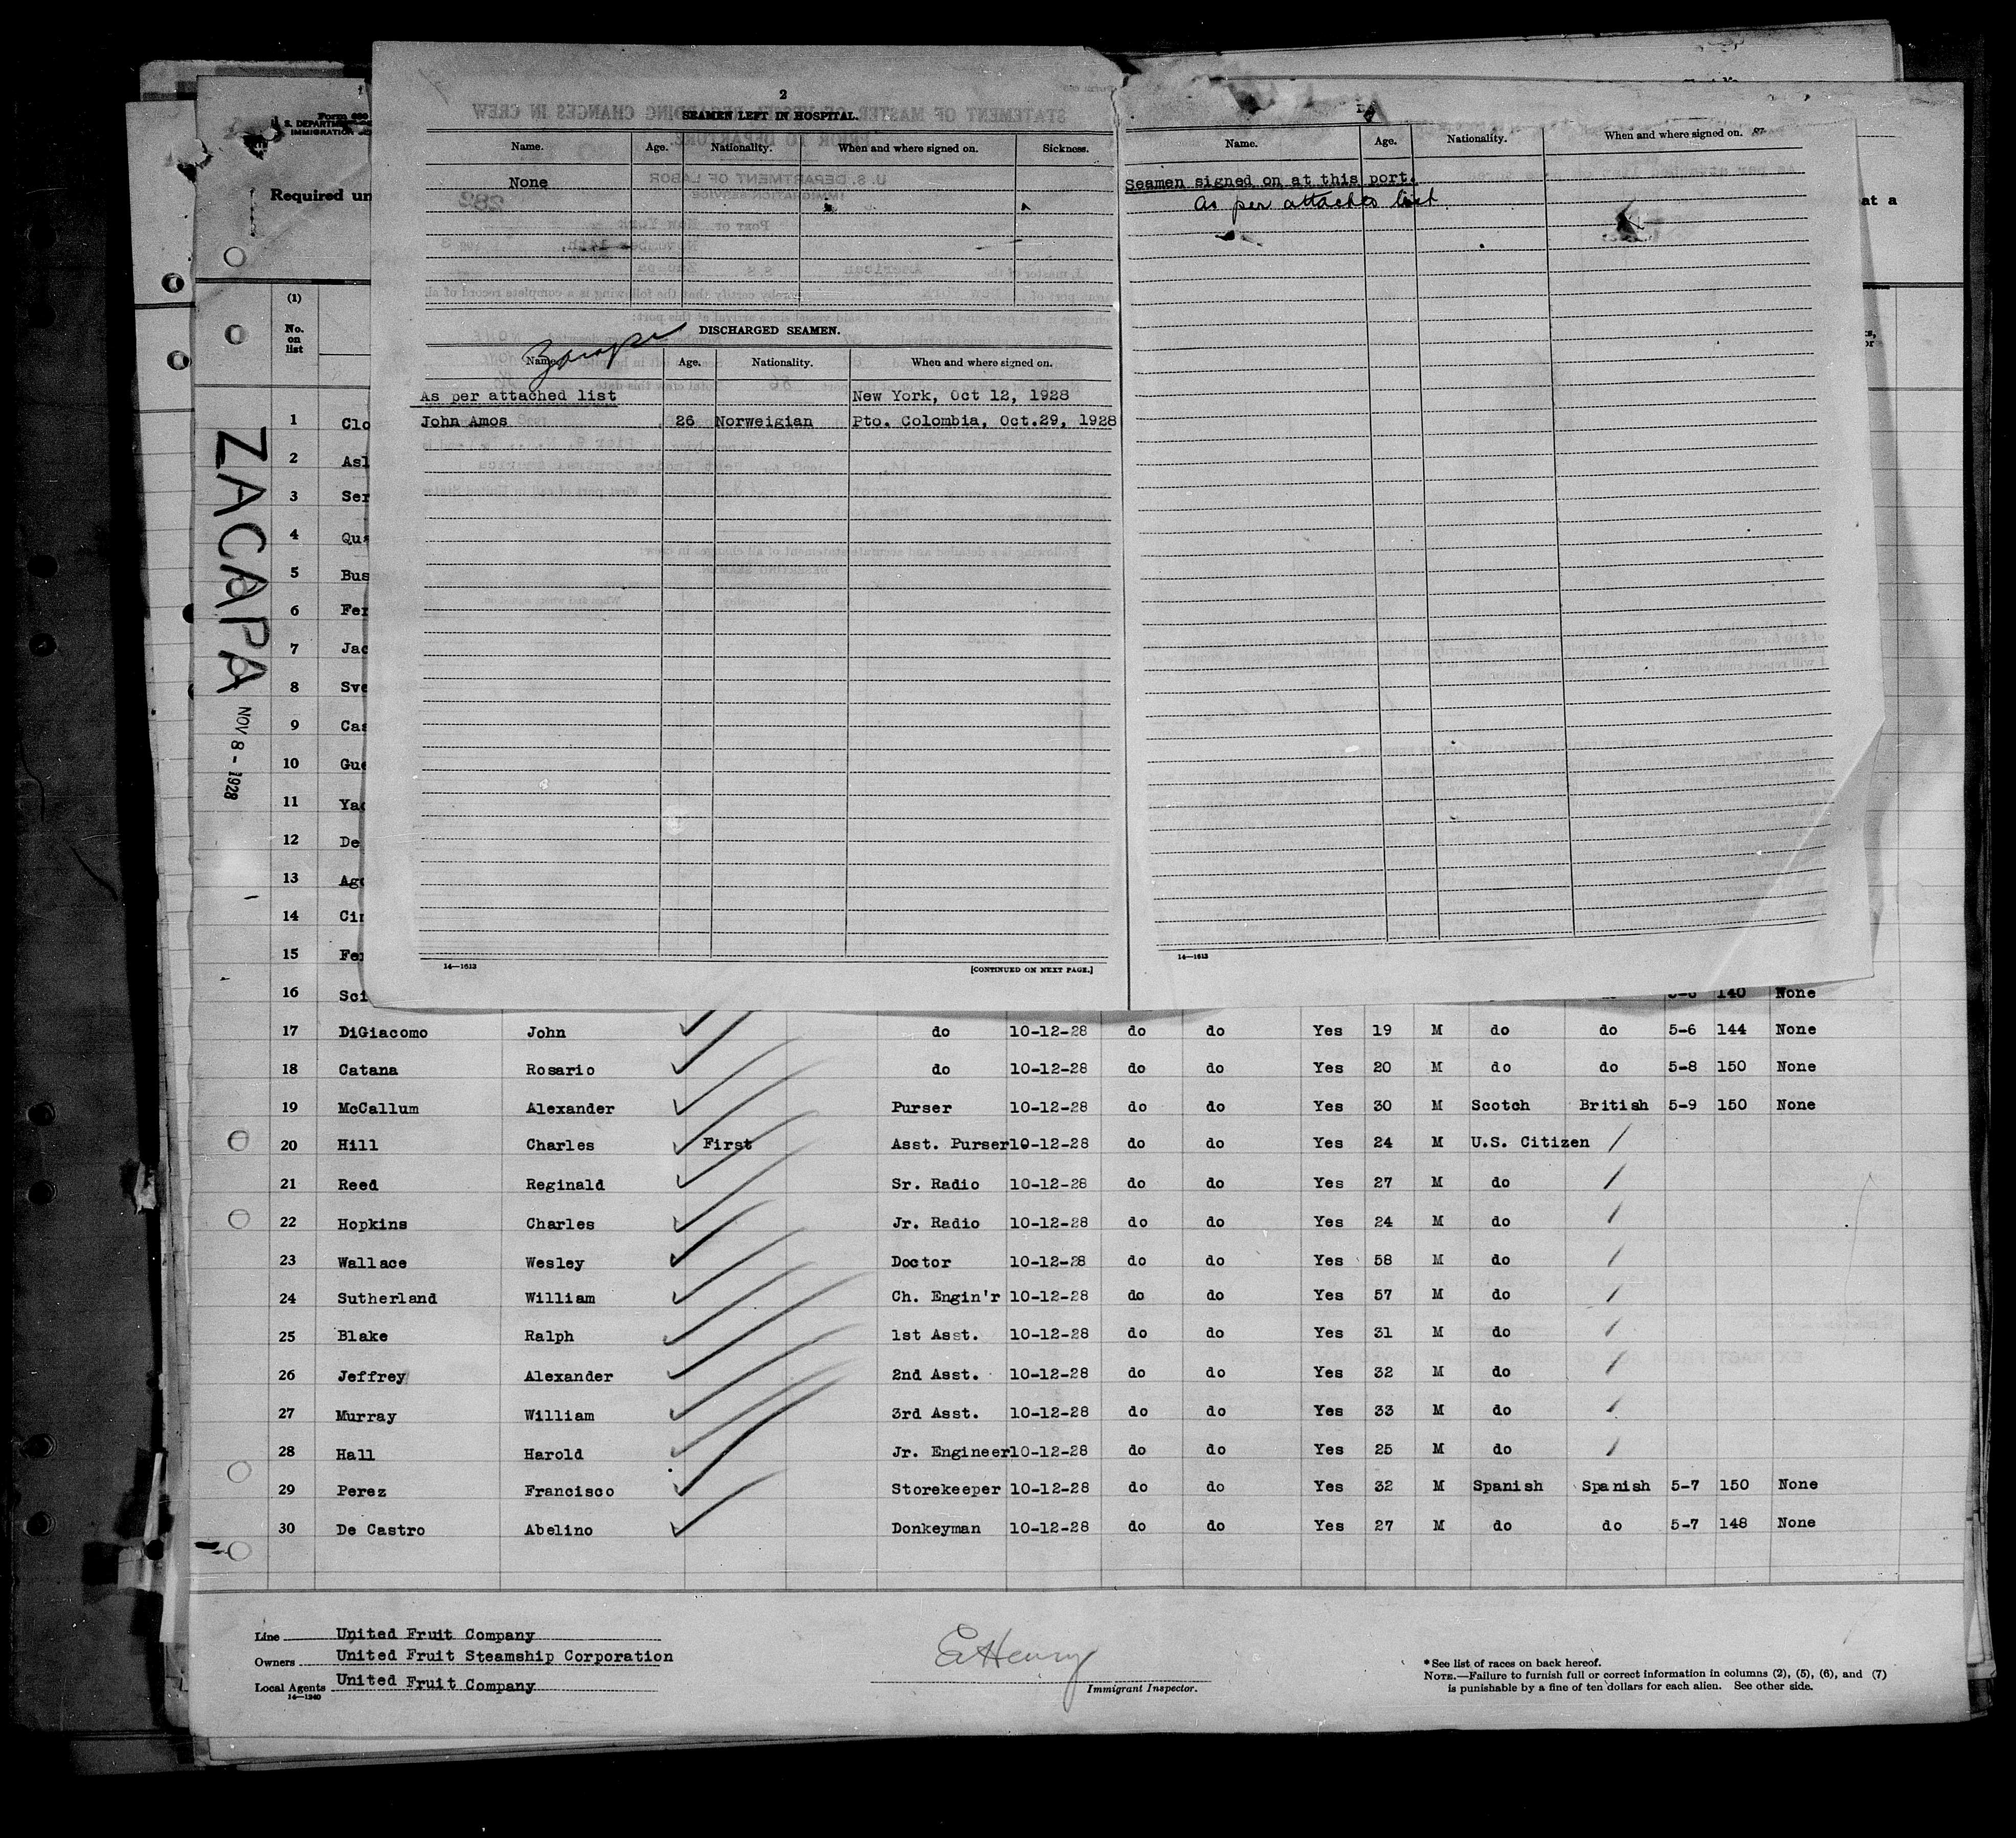 2
SEAMEN LEFT IN HOSPITAL.
Name. Age. Nationality. When and where signed on. Sickness.
None
DISCHARGED SEAMEN.
Name. Age. Nationality. When and where signed on.
As per attached list New York, Oct 12, 1928
John Amos 26 Norweigian Pto. Colombia, Oct.29, 1928
14—1613 [CONTINUED ON NEXT PAGE.]
Name. Age. Nationality. When and where signed on.
Seamen signed on at this port.
As per attached list
14—1613
Form 680
U. S. DEPARTMENT
IMMIGRATION
Required un
at a
ZACAPA
NOV 8 - 1928
(1)
No.
on
list
1 Clo
2 Asl
3 Ser
4 Qua
5 Bus
6 Fer
7 Jac
8 Sve
9 Cas
10 Gue
11 Yac
12 De
13 Ago
14 Cir
15 Fer
16 Sci 140 None
17 DiGiacomo John do 10-12-28 do do Yes 19 M do do 5-6 144 None
18 Catana Rosario do 10-12-28 do do Yes 20 M do do 5-8 150 None
19 McCallum Alexander Purser 10-12-28 do do Yes 30 M Scotch British 5-9 150 None
20 Hill Charles First Asst. Purser 10-12-28 do do Yes 24 M U.S. Citizen
21 Reed Reginald Sr. Radio 10-12-28 do do Yes 27 M do
22 Hopkins Charles Jr. Radio 10-12-28 do do Yes 24 M do
23 Wallace Wesley Doctor 10-12-28 do do Yes 58 M do
24 Sutherland William Ch. Engin'r 10-12-28 do do Yes 57 M do
25 Blake Ralph 1st Asst. 10-12-28 do do Yes 31 M do
26 Jeffrey Alexander 2nd Asst. 10-12-28 do do Yes 32 M do
27 Murray William 3rd Asst. 10-12-28 do do Yes 33 M do
28 Hall Harold Jr. Engineer 10-12-28 do do Yes 25 M do
29 Perez Francisco Storekeeper 10-12-28 do do Yes 32 M Spanish Spanish 5-7 150 None
30 De Castro Abelino Donkeyman 10-12-28 do do Yes 27 M do do 5-7 148 None
Line United Fruit Company
Owners United Fruit Steamship Corporation
Local Agents United Fruit Company
14—1240
E Henry
Immigrant Inspector.
* See list of races on back hereof.
NOTE.—Failure to furnish full or correct information in columns (2), (5), (6), and (7)
is punishable by a fine of ten dollars for each alien. See other side.